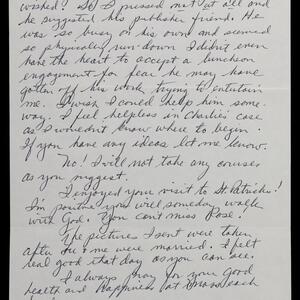 wished! So I pressed not at all and
he suggested his publisher friend. He
was so busy on his own and seemed
so physically run-down I didn't even
have the heart to accept a luncheon
engagement for fear he may have
gotten off his work trying to entertain
me. I wish I could help him some-
way. I feel helpless in Charlie's case
as I don't know where to begin.
If you have any ideas let me know.
No! I will not take any courses
as you suggest.
I enjoyed your visit to St. Patricks!
I'm positive you will someday walk
with God. You can't miss Rose!
The pictures I sent were taken
after we were married. I felt
real good that day as you can see.
I always pray for your good
health and happiness at Mass each